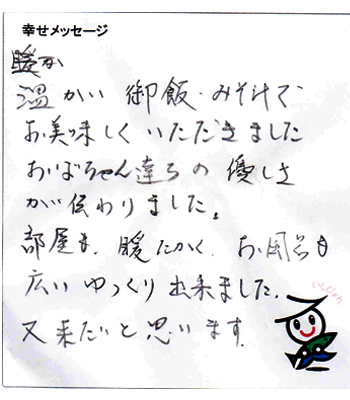 幸せメッセージ
暖か
温かい御飯・みそ汁で
お美味しくいただきました
おばちゃん達ろの優しさ
が伝わりました。
部屋も、暖たかく、お風呂も
広いゆっくり出来ました。
又来たいと思います。